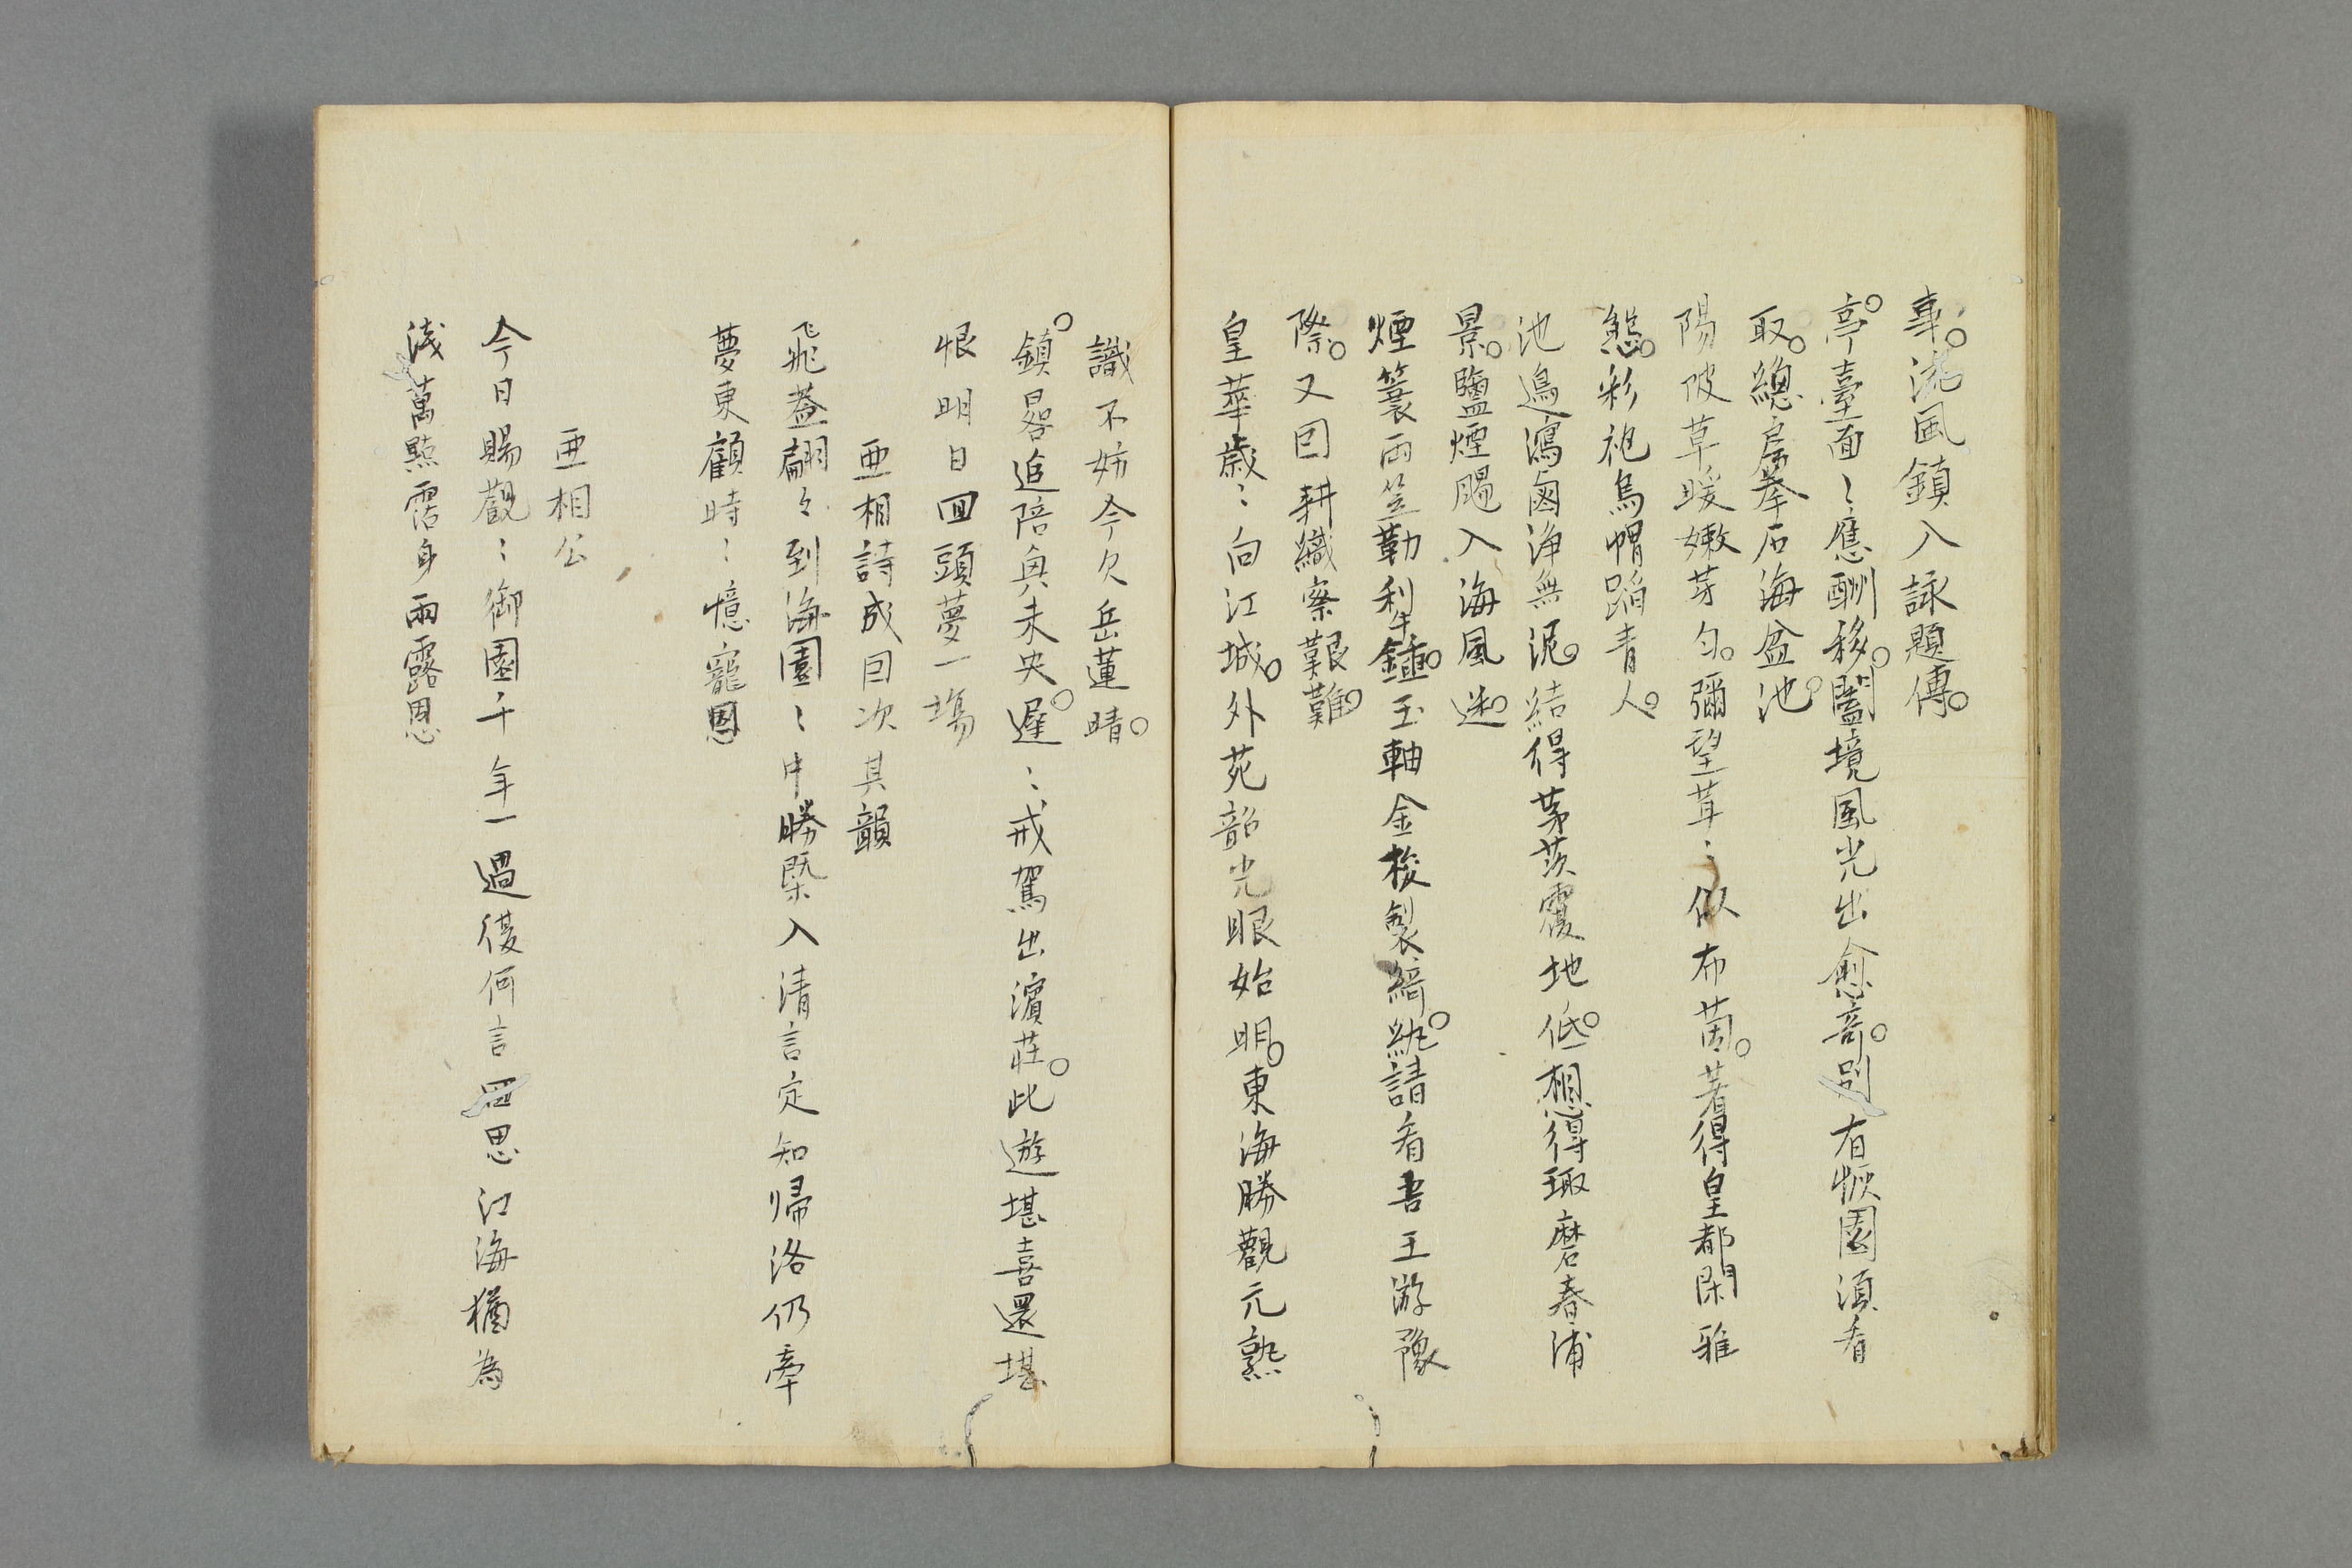 事。流風鎮入詠題傳。
亭。臺面〻應酬移。闔境風光出愈竒。別有恢園須看
取。總房拳石海盆池。
陽陂草暖嫩芽匀。彌望茸〻似布茵。著得皇都閑雅
態。彩袍烏帽蹈青人。
池邊瀉鹵淨無泥。結得茅茨覆地低。想得璷磨春浦
景。鹽煙颺入海風迷。
煙簑雨笠勒犁鍤。玉軸金梭製綺紈。請看吾王游豫
際。又回耕織察艱難。
皇華歲〻向江城。外苑韶光眼始明。東海勝觀元熟
識不妨今欠岳蓮晴。
鎮。畧追陪興未央。遲〻戒駕出濵莊。此遊堪喜還堪
恨明日回頭夢一塲
亜相詩成因次其韻
飛蓋翩々到海園〻中勝槩入清言定知帰洛仍牽
夢東顧時〻憶寵恩
亜相公
今日賜觀〻御園千年一遇復何言思江海猶為
淺萬點霑身雨露恩